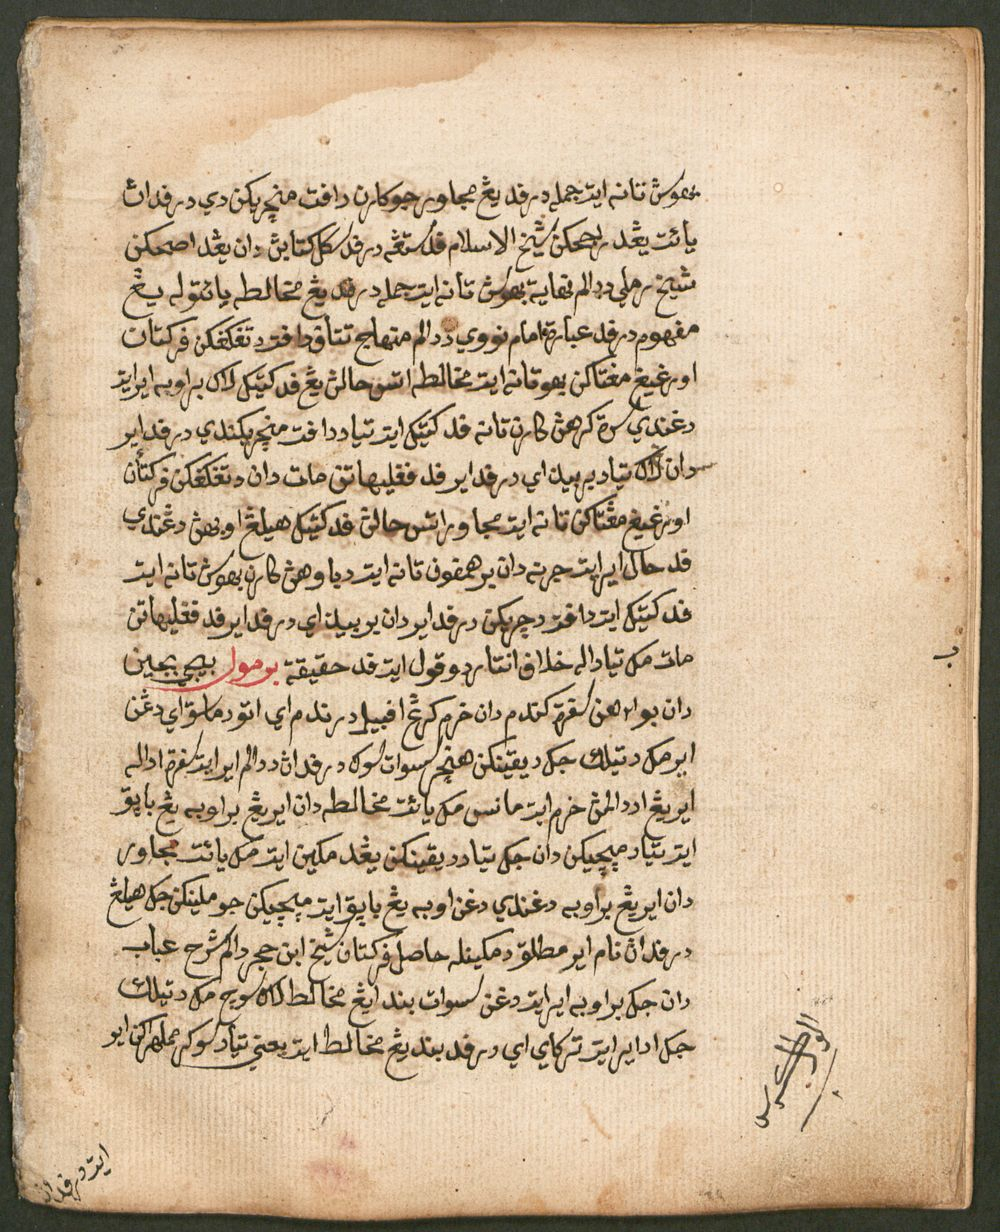 بهوس تانه ايت جمله درفد يڠ مجاور جوكارن دافت منچريكن دي درفدان
يائت يڠد رجحكن شيخ الاسلام فد ستڠه درفد سكل كتابڽ دان يڠد اصحكن
شيخ رملي ددالم نهاية بهوس تانه ايت جمله درفد يڠ مخالطه يائتوله يڠ
مفهوم درفد عبارة امام نووي ددالم منهاج تتاف دافت دتڠكڠكن فركتان
اورڠيڠ مڠتاكن بهوقانه ايت مخالطه اتس حالن يڠ فد كتيك لاك براوبه اير ايت
دڠندي سرة كرهن كارن تانه فد كتيك ايت تياد دافت منچريكندي درفد اير
دان لاك تياد بربيذاي درفد اير فد فڠليهاتن مات دان دتڠكڠكن فركتأن
اورڠيڠ مڠتاكن تانه ايت مجاور اتس حالن فد كتيك هيلڠ اوبهن دڠندي
فد حال اير ايت جرنه دان برهمفون تانه ايت دباوهن كارن بهوس تانه ايت
فد كتيك ايت دافت دچريكن درفد اير دان بربيذاي درفد اير فد فڠليهاتن
مات مك تياداله خلاف انتار دو قول ايت فد حقيقة برمول بيجي بجين
دان بواه هن سفرة كندم دان خرم كرڠ افبيل درندم اي اتو دماسق اي دڠن
اير مك دتيلك جك ديقينكن هنچر سوات سوك درفدان ددالم اير ايت سفرة اداله
اير يڠ اددالمن خرم ايت مانس مك يائت مخالطه دان اير يڠ براوبه يڠ بايق
ايت تياد مپچيكن دان جك تياد ديقينكن يڠد مكين ايت مك يائت مجاور
دان اير يڠ براوبه دڠندي دڠن اوبه يڠ بايق ايت مپچيكن جوملينكن جك هيلڠ
درفدان نام اير مطلق دمكينله حاصل فركتان شيخ ابن حجر دالم شرح عباب
دان جك براوبه اير ايت دڠن سوات بند ايڠ مخالط لاك سوچ مك دتيلك
جك اداير ايت تركاي اي درفد بند يڠ مخالط ايت يعني تياد سوكر مملهراكن اير
ايت درفدان
ب